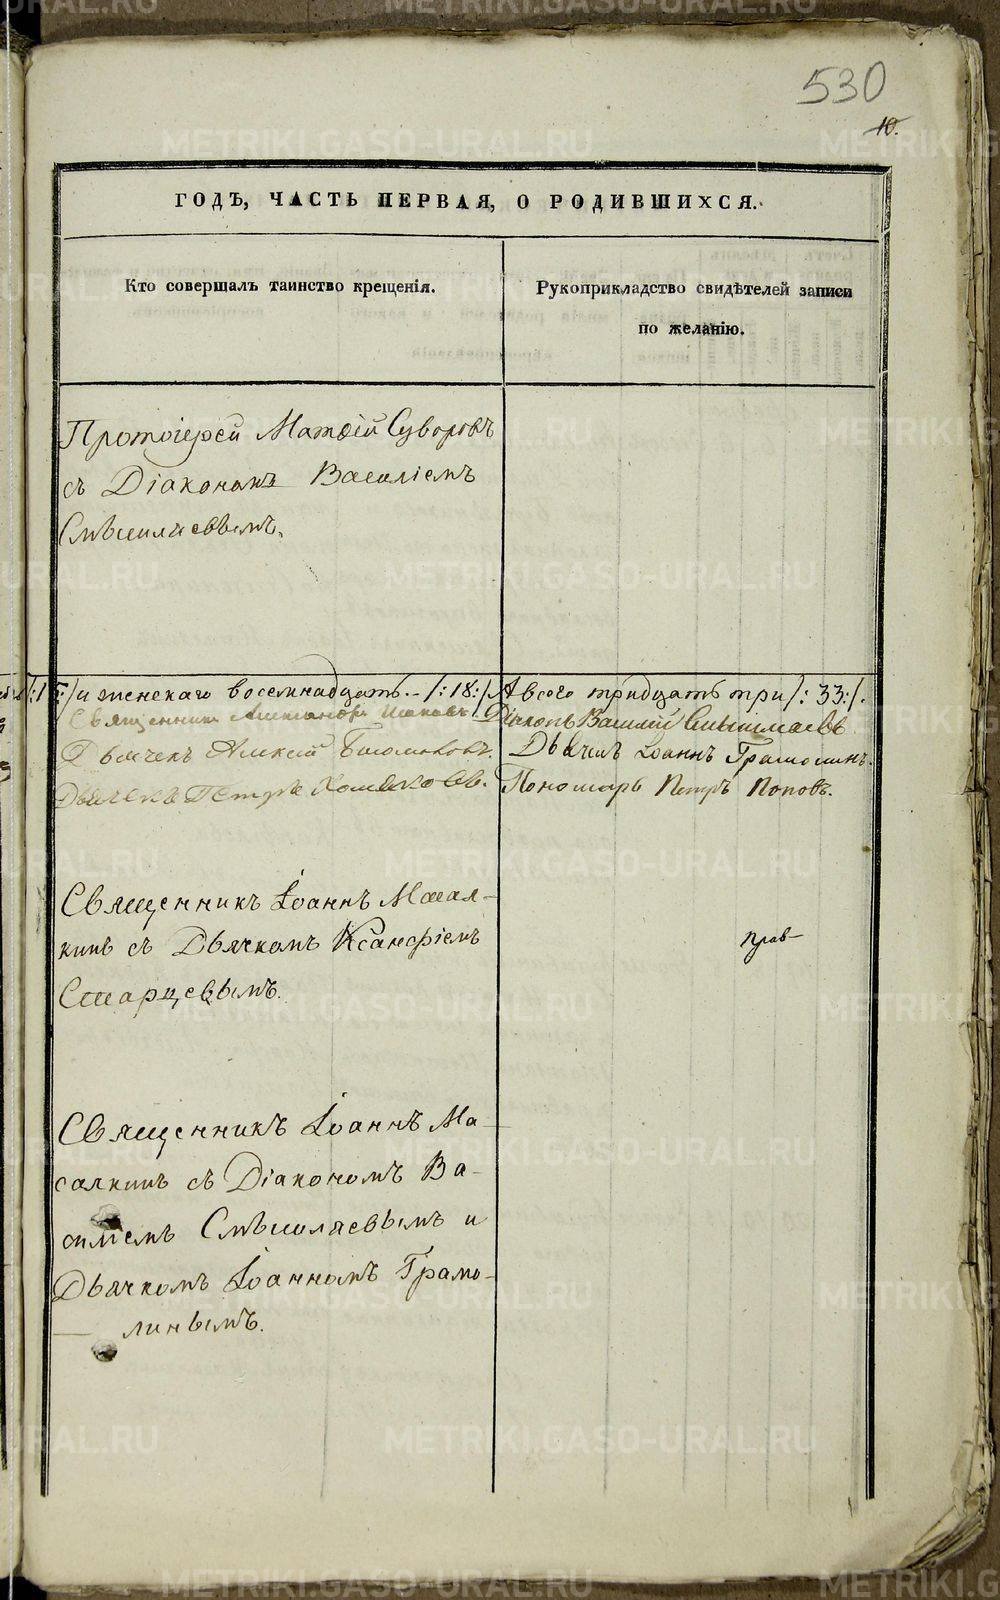 530
10.
ГОДЪ, ЧАСТЬ ПЕРВАЯ, О РОДИВШИХСЯ.
Кто совершалъ таинство крещенія.
Рукоприкладство свидѣтелей записи
по желанію.
Протоіерей Матѳій Суворовъ
съ Діакономъ Василіемъ
Смышляевымъ.
/:15:/ и женскаго восемнадцать. - /:18:/ А всего тридцать три /:33:/.
Священникъ Александръ Діаконъ Василій Смышляевъ
Дьячекъ Алексій Дьячекъ Іоаннъ Грамолинъ.
Дьячекъ Петръ Хомяковъ. Пономарь Петръ Поповъ.
Священникъ Іоаннъ Масал-
кинъ съ Дьячкомъ Ксанѳіемъ
Старцевымъ.
Прав-
Священникъ Іоаннъ Ма-
салкинъ съ Діакономъ Ва-
силіемъ Смышляевымъ и
Дьячкомъ Іоанномъ Грамо-
линымъ.
METRIKI.GASO-URAL.RU